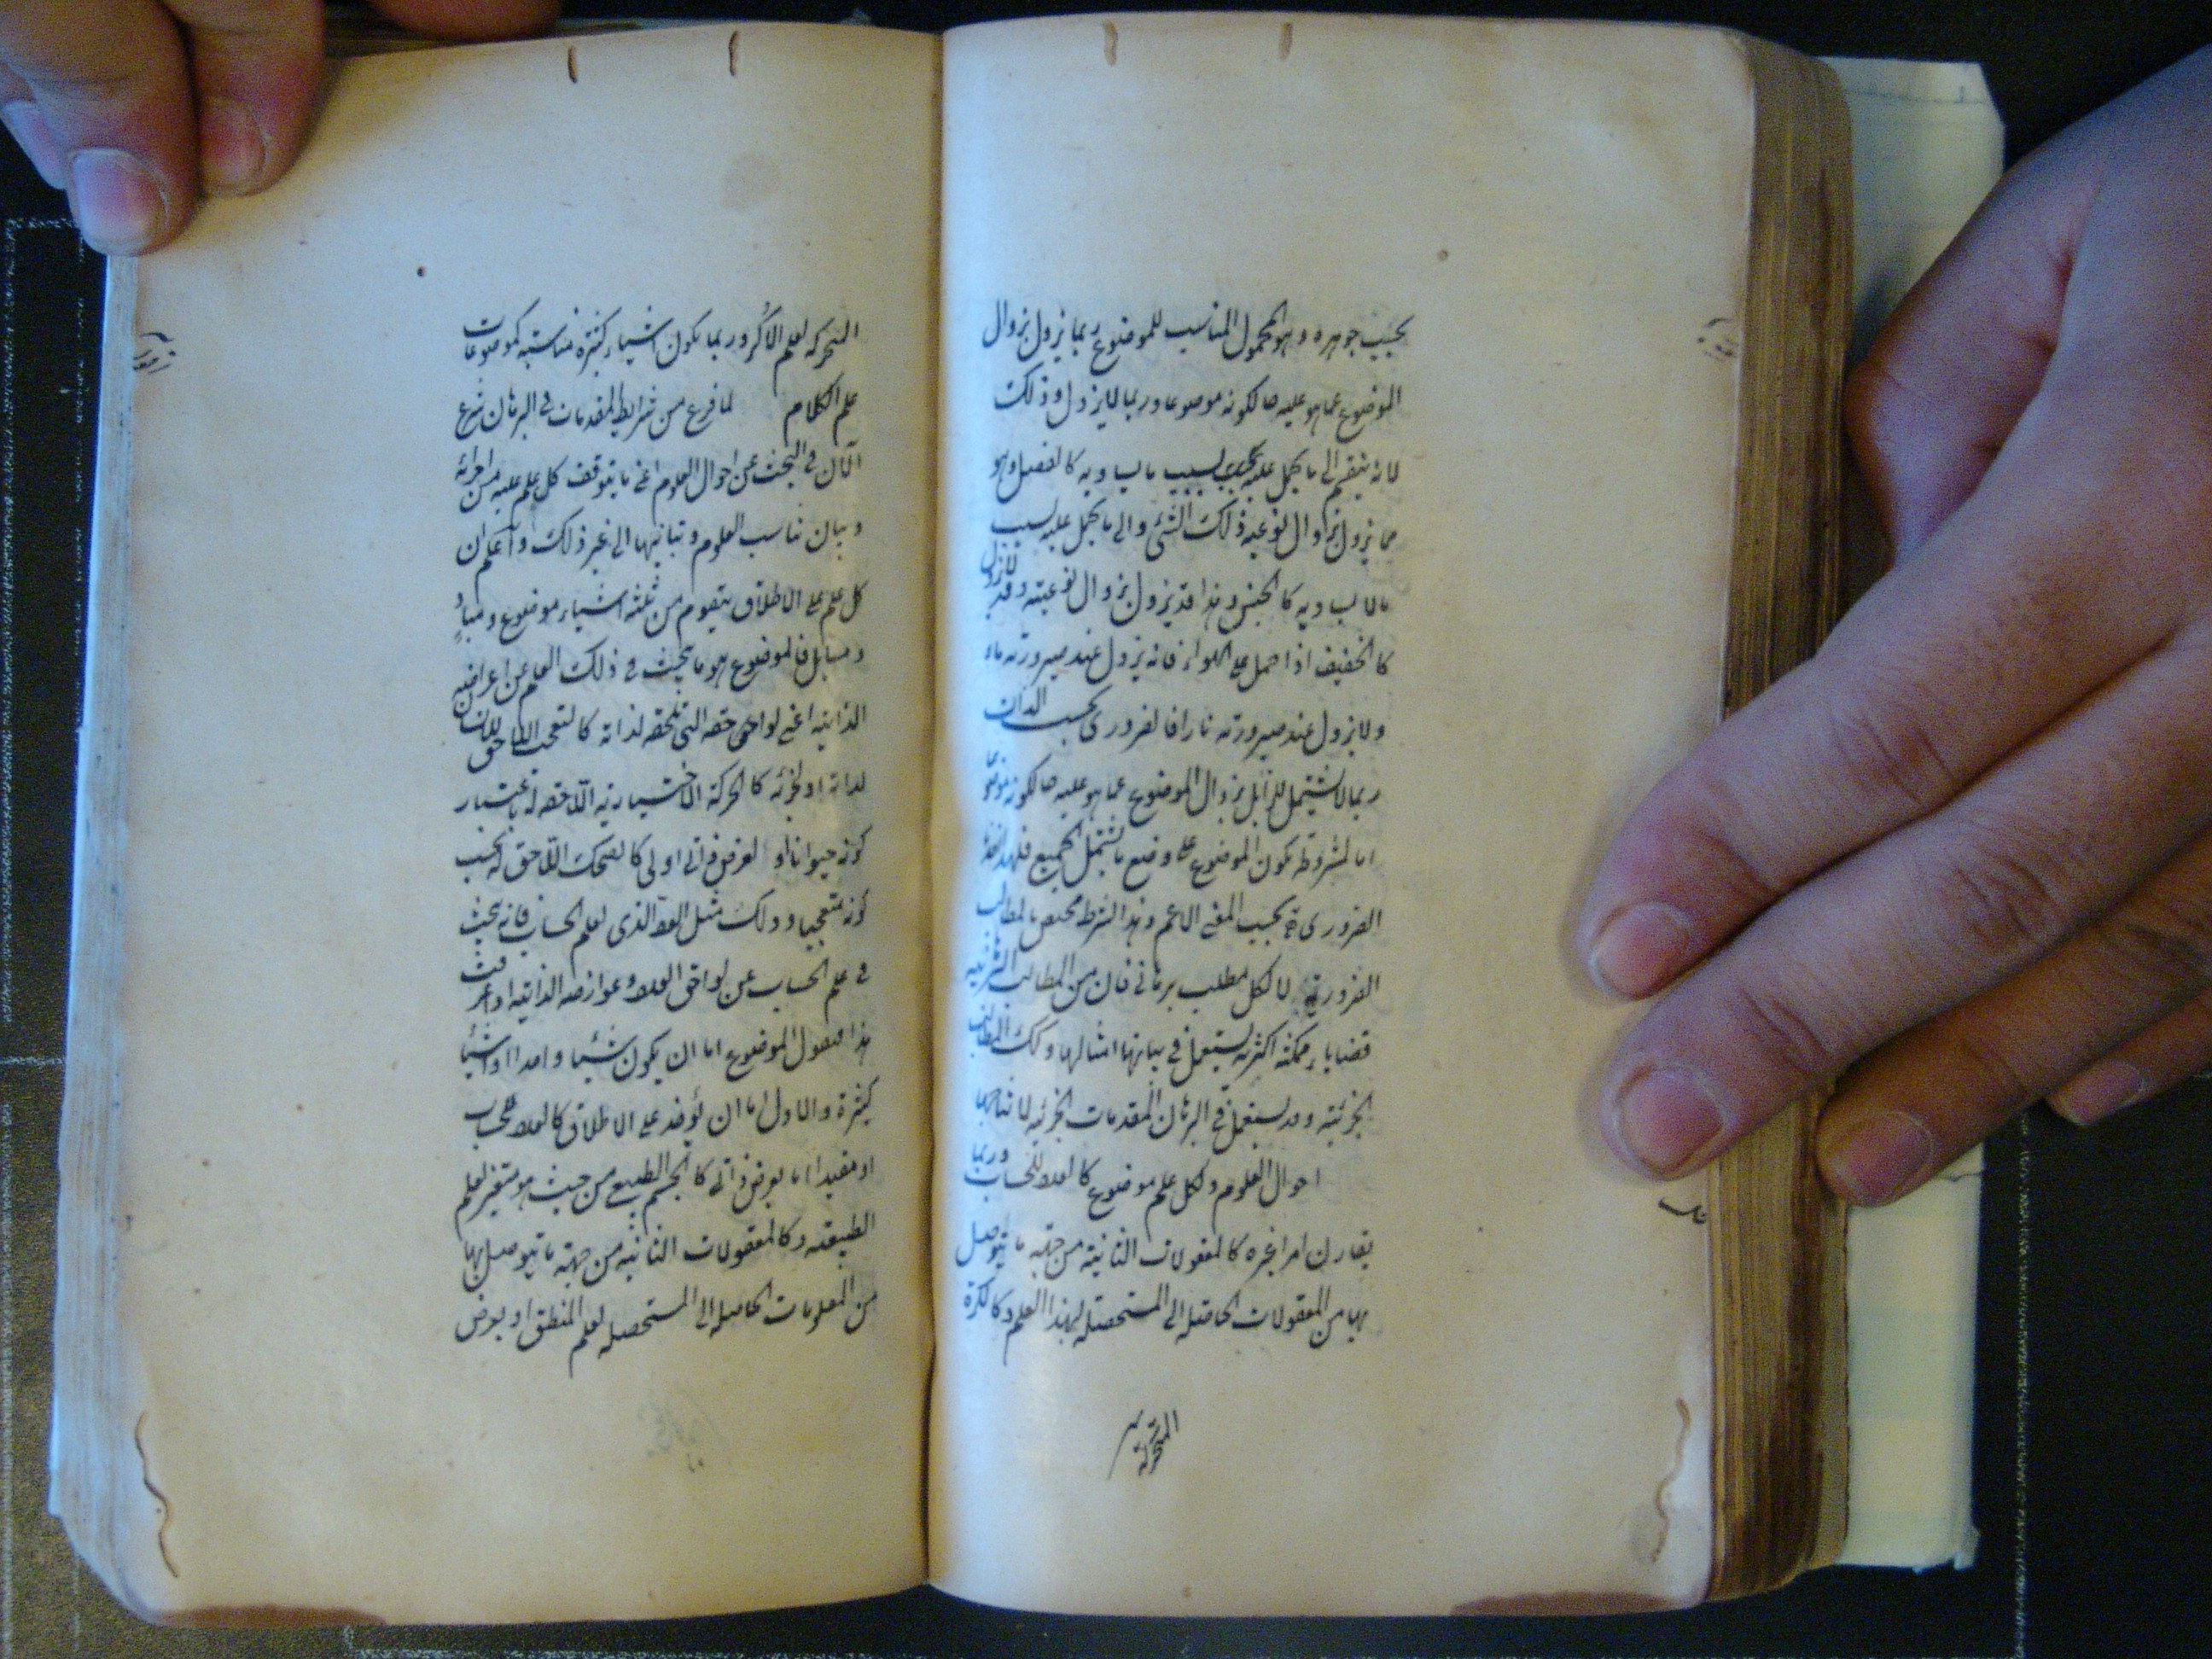 بحسب جوهره وهو المحمول المناسب للموضوع ربما يزول بزوال
الموضوع عما هو عليه حالكونه موضوعا وربما لا يزول وذلك
لانه ينقسم الى ما يحمل عليه بسبب ما يساويه كالفصل وهو
مما يزول بزوال نوعية ذلك الشئ والى ما يحمل عليه بسبب
ما لا يساويه كالجنس وهذا قد يزول بزوال نوعيته وقد لا يزول
كالخفيف اذا حمل على الهواء فانه يزول عند صيرورته ماء
ولا يزول عند صيرورته نارا فالضرورى بحسب الذات
ربما لا يشتمل الزائل بزوال الموضوع عما هو عليه حالكونه موضوعا
اما المشروطة بكون الموضوع على وضع ما يشتمل الجميع فلهذا
الضرورى بحسب المعنى الاعم وهذا الشرط مختص بالمطالب
الضرورية لا لكل مطلب برهانى فان من المطالب البرهانية
قضايا ممكنة اكثرية يستعمل فى بيانها امثالها وكذلك المطالب
الجزئية وقد يستعمل فى البرهان المقدمات الجزئية
احوال العلوم ولكل علم موضوع كالعدد للحساب وربما
يقارن امرا غيره كالمعقولات الثانية من جهة ما يتوصل
بها من المعقولات الحاصلة الى المستحصلة لهذا العلم وكالكرة
المتحركة
المتحركة لعلم الاكر وربما يكون اشياء كثيرة متناسبة كموضوعات
علم الكلام لما فرغ من شرايط المقدمات فى البرهان شرع
الآن فى البحث عن احوال العلوم اعنى ما يتوقف كل علم عليه من اجزائه
وبيان تناسب العلوم وتباينها الى غير ذلك واعلم ان
كل علم على الاطلاق يتقوم من ثلثة اشياء موضوع ومباد
ومسايل فالموضوع هو ما يبحث فى ذلك العلم عن اعراضه
الذاتية اعنى لواحقه التى تلحقه لذاته كالتعجب اللاحق للانسان
لذاته او لجزئه كالحركة الاختيارية اللاحقة له باعتبار
كونه حيوانا او لعرض ذاتى اولى كالضحك اللاحق له بحسب
كونه متعجبا وذلك مثل العدد الذى لعلم الحساب فانه يبحث
فى علم الحساب عن لواحق العدد وعوارضه الذاتية اذا عرفت
هذا فنقول الموضوع اما ان يكون شيئا واحدا او اشياء
كثيرة والاول اما ان يؤخذ على الاطلاق كالعدد للحساب
او مقيدا اما بعرض ذاتى كالجسم الطبيعى من حيث هو متغير لعلم
الطبيعة وكالمعقولات الثانية من جهة ما يتوصل بها
من المعلومات الحاصلة الى المستحصلة لعلم المنطق او بعرض